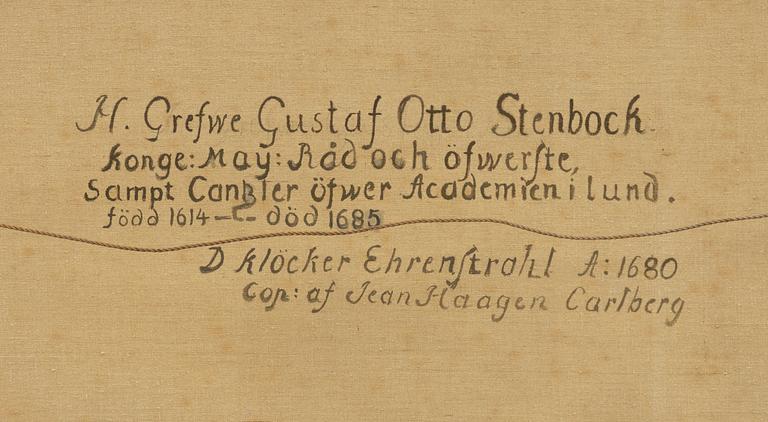 H. Grefwe Gustaf Otto Stenbock.
Konge: May: Råd och öfwerste,
Sampt Cantzler öfwer Academien i lund.
född 1614 — död 1685
D Klöcker Ehrenstrahl A: 1680
Cop: af Jean Haagen Carlberg